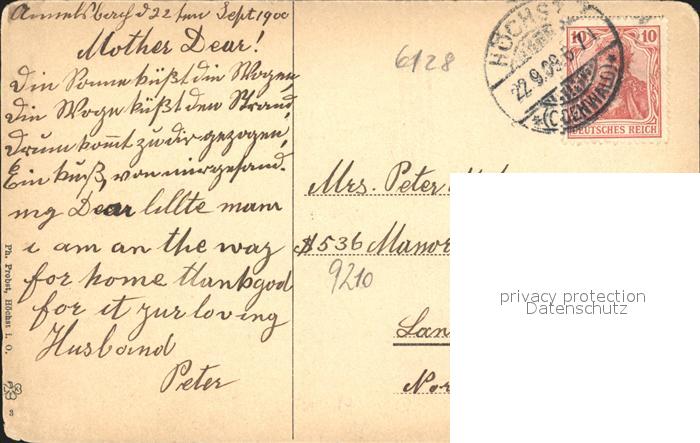 Annelsbach d 22ten Sept 190
Mother Dear!
Die Sonne küßt die Wogen,
die Woge küßt den Strand,
drum kommt zu dir gezogen,
Ein kuß, von mir gesand.
my Dear lillte mama
i am an the way
for home thankgod
for it your loving
Husband
Peter
Ph. Probst, Höchst i. O.
3
6128
HÖCHST
22.9.09.6-7N
*(ODENWALD)*
10 10
DEUTSCHES REICH
Mrs. Peter
$536 Manor
9210
Lan
Nor
privacy protection
Datenschutz